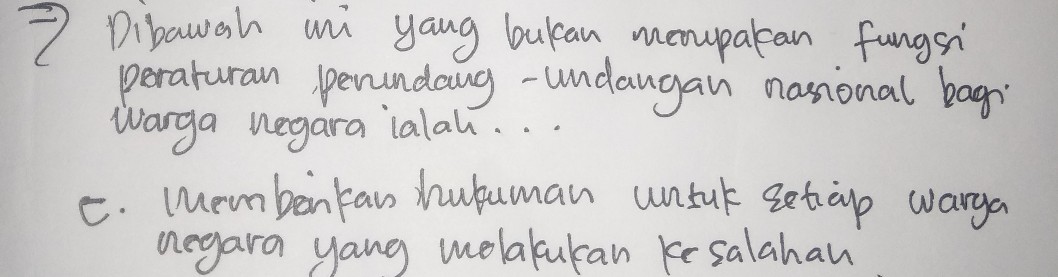 7 Dibawah ini yang bukan merupakan fungsi
peraturan perundang-undangan nasional bagi
warga negara ialah...
c. Memberikan hukuman untuk setiap warga
negara yang melakukan kesalahan